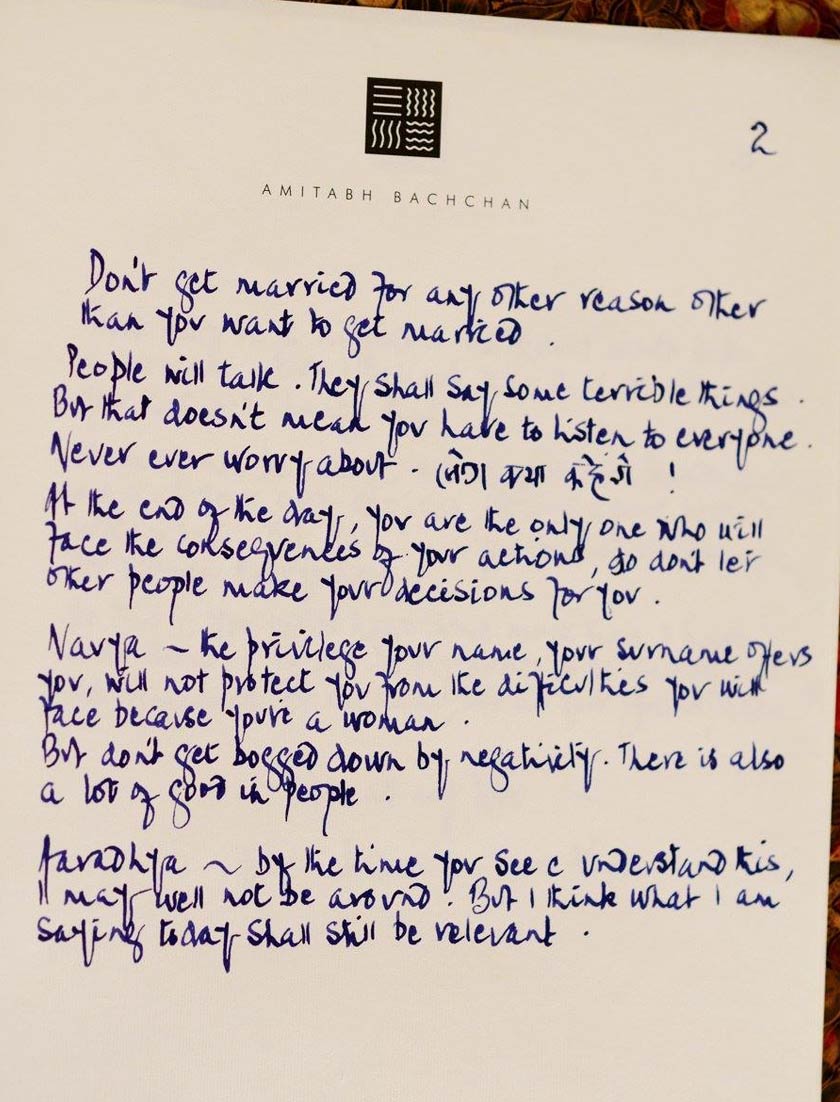 2
AMITABH BACHCHAN
Don't get married for any other reason other
than you want to get married .
People will talk . They shall say some terrible things .
But that doesn't mean you have to listen to everyone .
Never ever worry about . लोग क्या कहेंगे !
At the end of the day, you are the only one who will
face the consequences of your actions, so don't let
other people make your decisions for you .
Navya ~ the privilege your name, your surname offers
you, will not protect you from the difficulties you will
face because you're a woman .
But don't get bogged down by negativity. There is also
a lot of good in people .
Aaradhya ~ by the time you see c understand this,
I may well not be around . But I think what I am
saying today shall still be relevant .